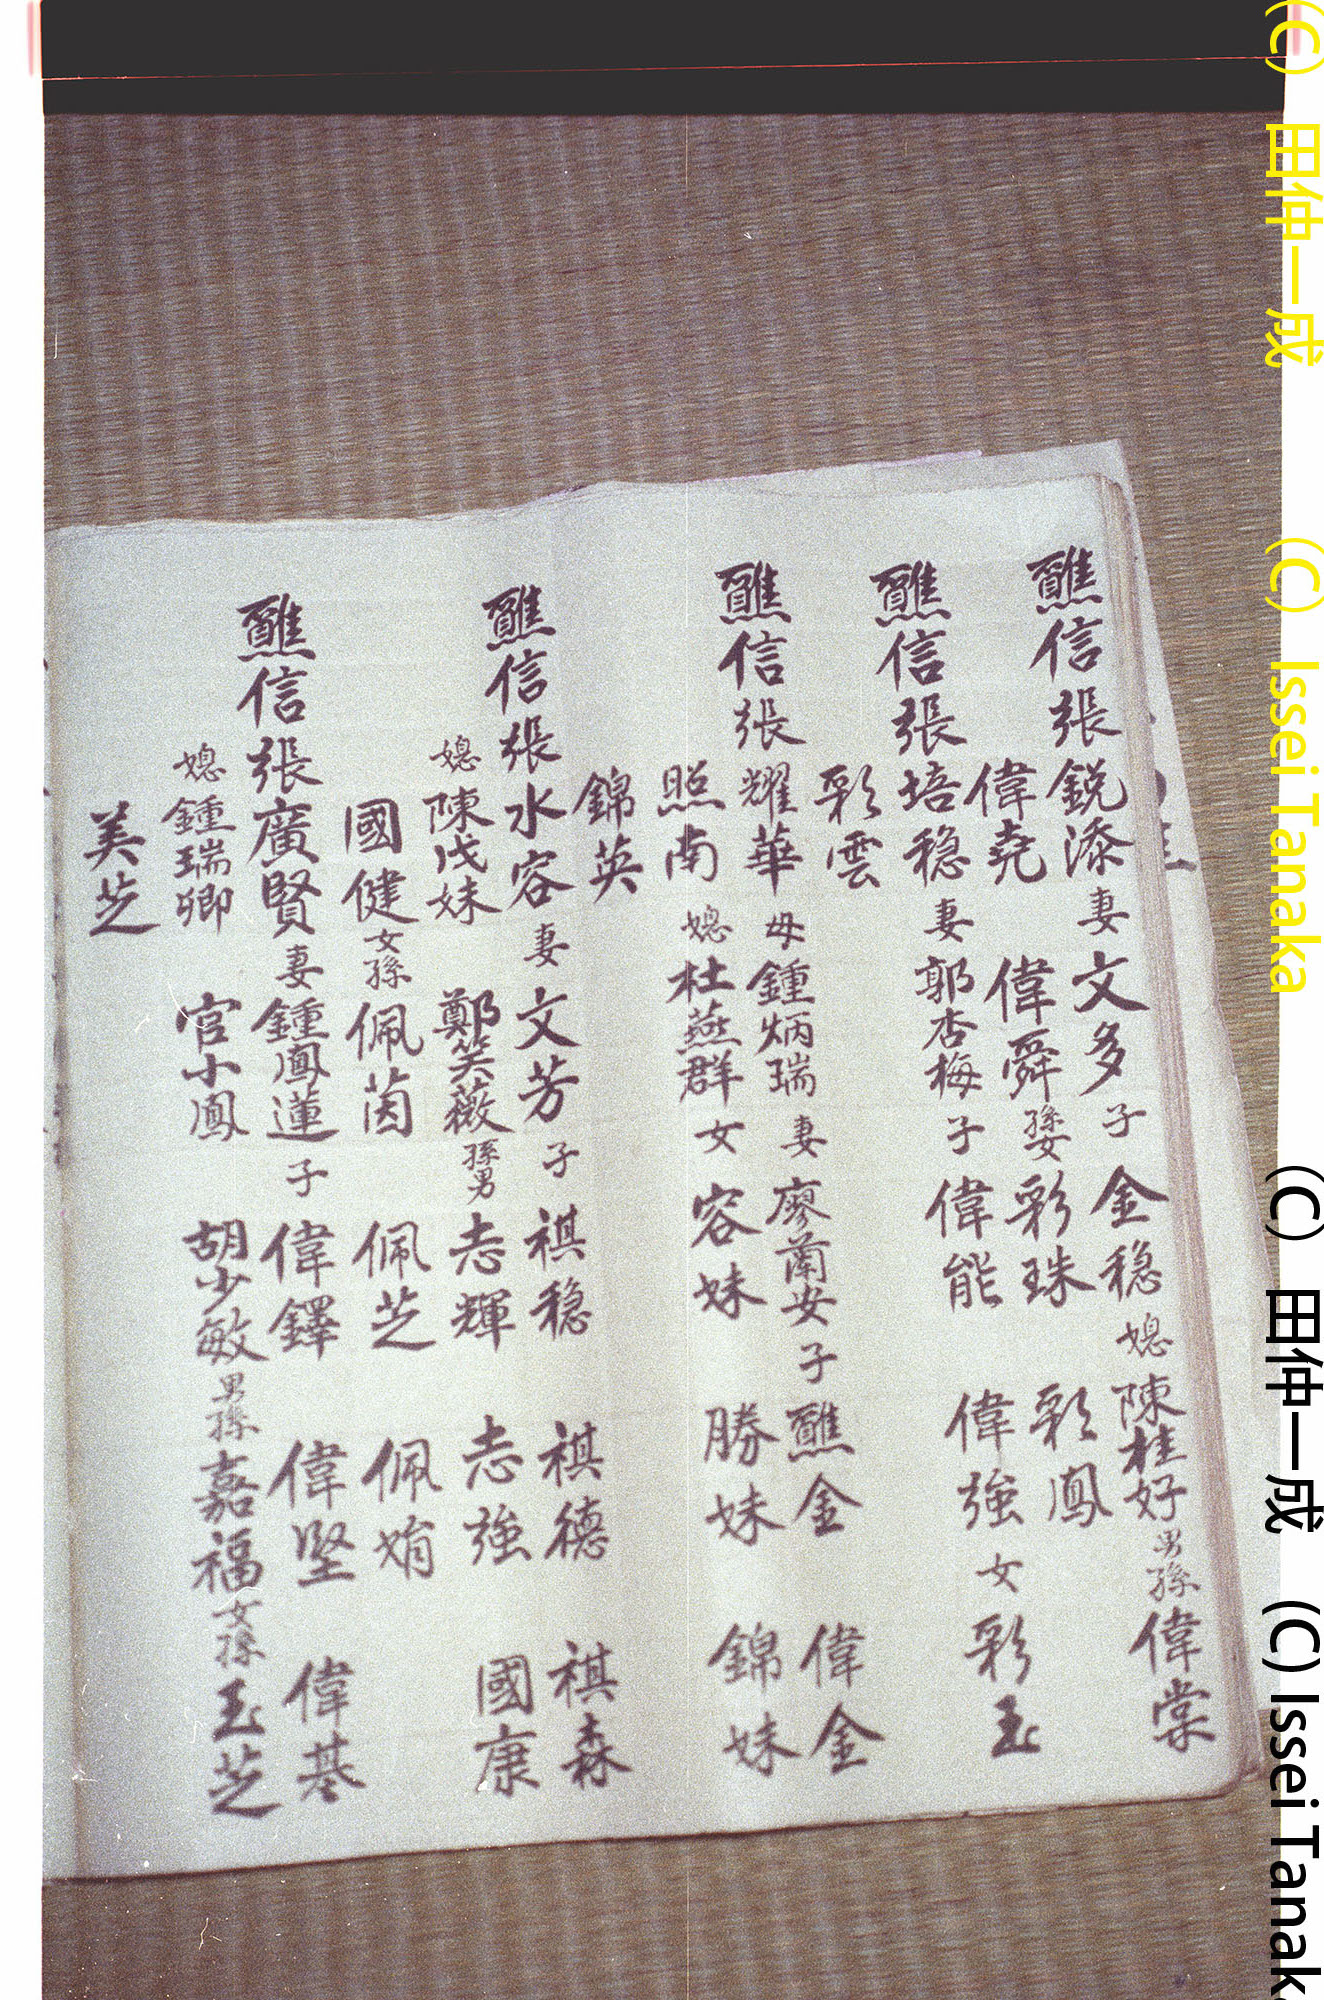 醮信張銳添妻文多子金穩媳陳桂好男孫偉棠
偉堯 偉舜孫女彩珠 彩鳳
醮信張培穩妻郭杏梅子偉能 偉強女彩玉
彩雲
醮信張耀華母鍾炳瑞妻廖蘭安子醮金 偉金
照南媳杜燕群女容妹 勝妹 錦妹
錦英
醮信張水容妻文芳子祺穩 祺德 祺森
媳陳戊妹 鄭笑薇孫男志輝 志強 國康
國健女孫佩茵 佩芝 佩娟
醮信張廣賢妻鍾鳳蓮子偉鐸 偉堅 偉基
媳鍾瑞卿 官小鳳 胡少敏男孫嘉福女孫玉芝
美芝
(C) 田仲一成 (C) Issei Tanaka
(C) 田仲一成 (C) Issei Tanaka